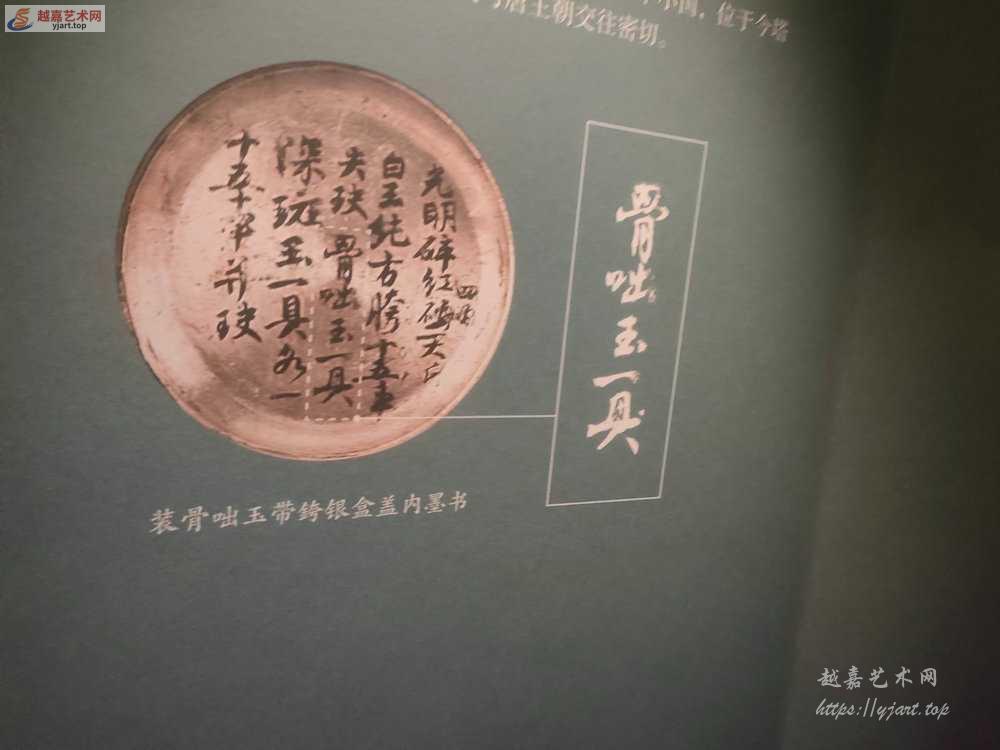 越嘉艺术网
yjart.top
小国，位于今塔
唐王朝交往密切。
光明碎红砂一大斤
四两
白玉纯方胯十五事
失玦骨咄玉一具
深斑玉一具各一
十五事并玦
骨咄玉一具
装骨咄玉带銙银盒盖内墨书
越嘉艺术网
https://yjart.top